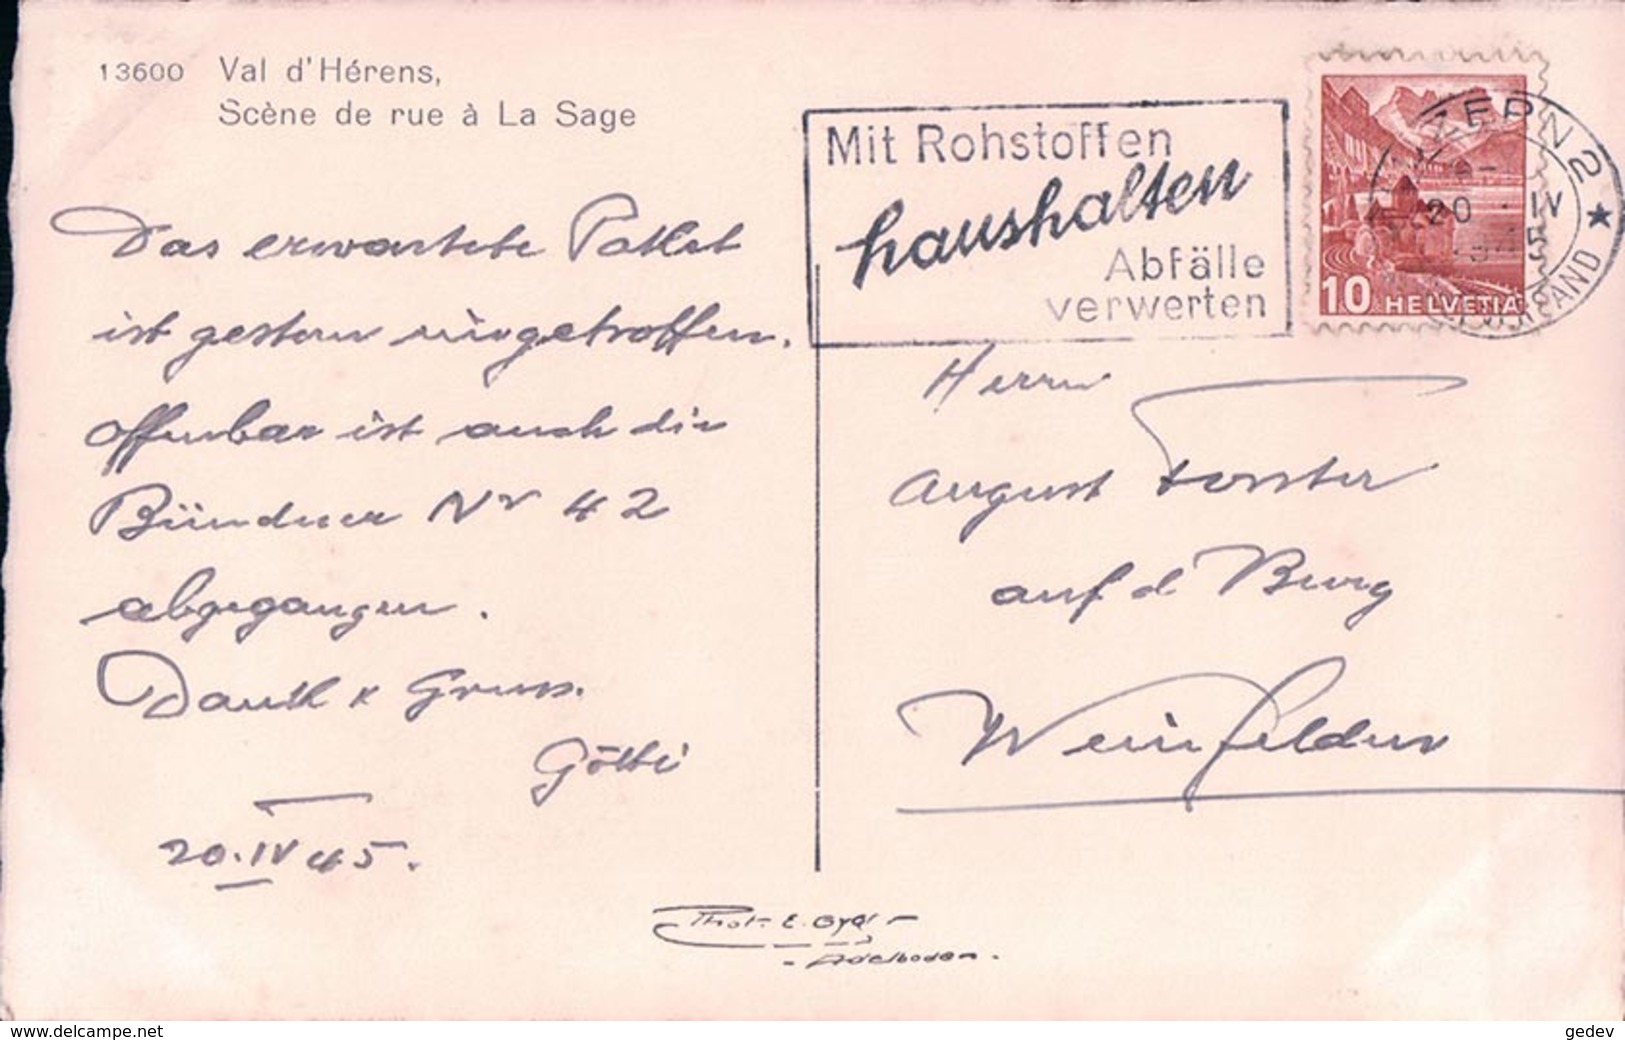 13600 Val d'Hérens,
Scène de rue à La Sage
Mit Rohstoffen
haushalten
Abfälle
verwerten
LUZERN 2
20 · IV
10 HELVETIA
Das erwartete Paket
ist gestern eingetroffen.
Offenbar ist auch die
Bündner Nr 42
abgegangen.
Dank & Gruss.
Götti
20.IV 45.
Herrn
August Forster
auf d Burg
Weinfelden
Phot. E. Gyger
- Adelboden -
www.delcampe.net
gedev